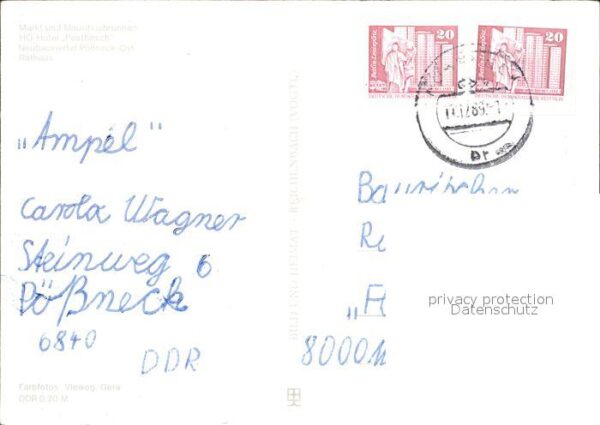 Markt und Mauritiusbrunnen
HO-Hotel „Posthirsch"
Neubauviertel Pößneck-Ost
Rathaus
„Ampel"
Carola Wagner
Steinweg 6
Pößneck
6840
DDR
Farbfotos: Vieweg, Gera
DDR 0,20 M
BILD UND HEIMAT REICHENBACH (VOGTL)
20
Berlin-Leninplatz
DEUTSCHE DEMOKRATISCHE REPUBLIK
20
Berlin-Leninplatz
DEUTSCHE DEMOKRATISCHE REPUBLIK
Re
„F
8000 M
privacy protection
Datenschutz